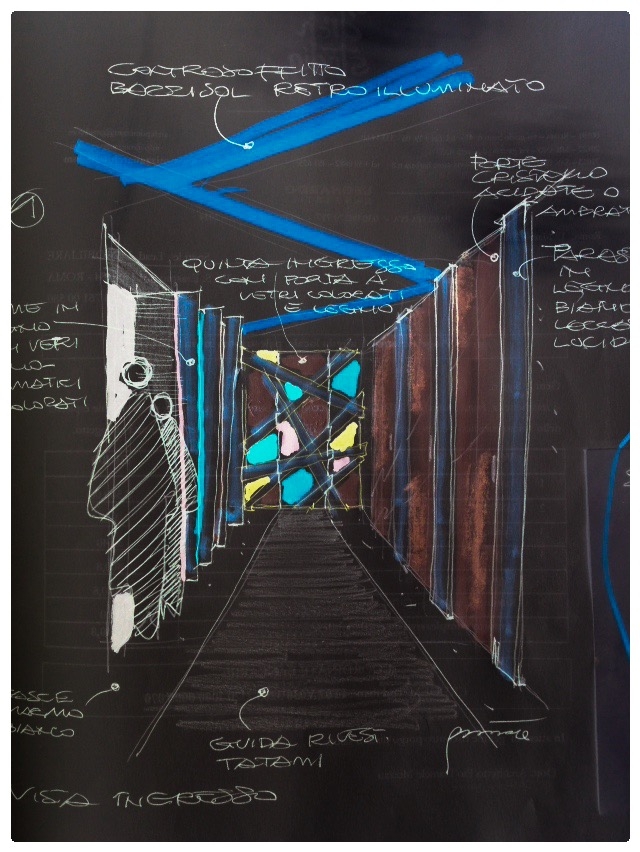 CONTROSOFFITTO
BARRISOL RETRO ILLUMINATO
1
PORTE
CRISTALLO
ACIDATE O
AMBRAT
QUINTA INGRESSO
CON PORTA A
VETRI COLORATI
E LEGNO
PARAS
IN
LEGNO
BIANC
LACCA
LUCID
ME IN
VETRI
MATICI
OLORATI
FASCE
MARMO
BIANCO
GUIDA RIVEST.
TATAMI
VISTA INGRESSO